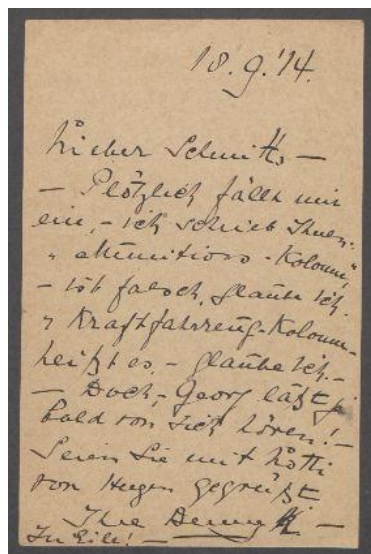 18.9.'14.
Lieber Schmitt, —
— Plötzlich fällt mir
ein, – ich schrieb Ihnen:
„Munitions-Kolonne“,
– ist falsch, glaube ich.
„Kraftfahrzeug-Kolonne–
heißt es, – glaube ich. –
— Doch, – Georg läßt ja
bald von sich hören! –
Seien Sie mit
von gegrüßt
Ihre
In Eile! —